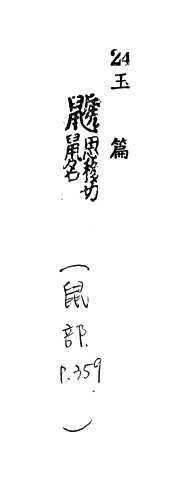 24 玉篇
鼶
思移切
鼠名
(鼠部. P.359.)